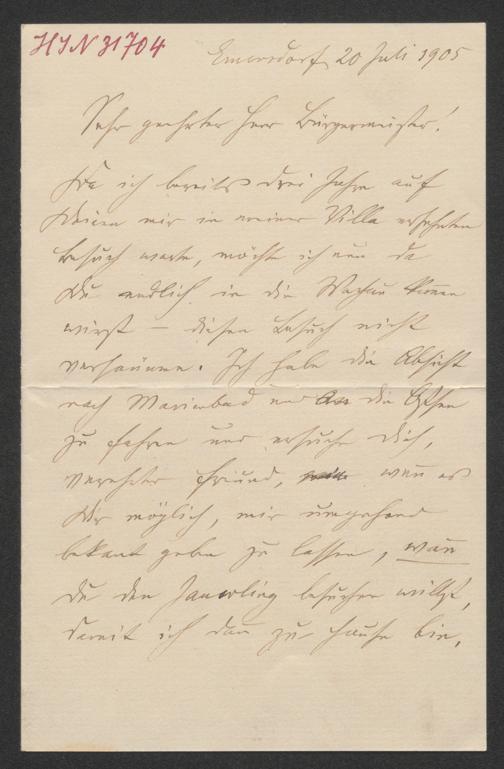 HIN 31704
Emersdorf 20 Juli 1905
Sehr geehrter Herr Bürgermeister!
Da ich bereits drei Jahre auf
Deinen mir in meiner Villa ersehnten
Besuch warte, möchte ich nun da
Du endlich in die Wachau kommen
wirst – diesen Besuch nicht
versäumen. Ich habe die Absicht
nach Marienbad und an die Ostsee
zu fahren und ersuche Dich,
verehrter Freund, wenn es
Dir möglich, mir umgehend
bekannt geben zu lassen, wann
Du den Jauerling besuchen willst,
damit ich dann zu Hause bin,